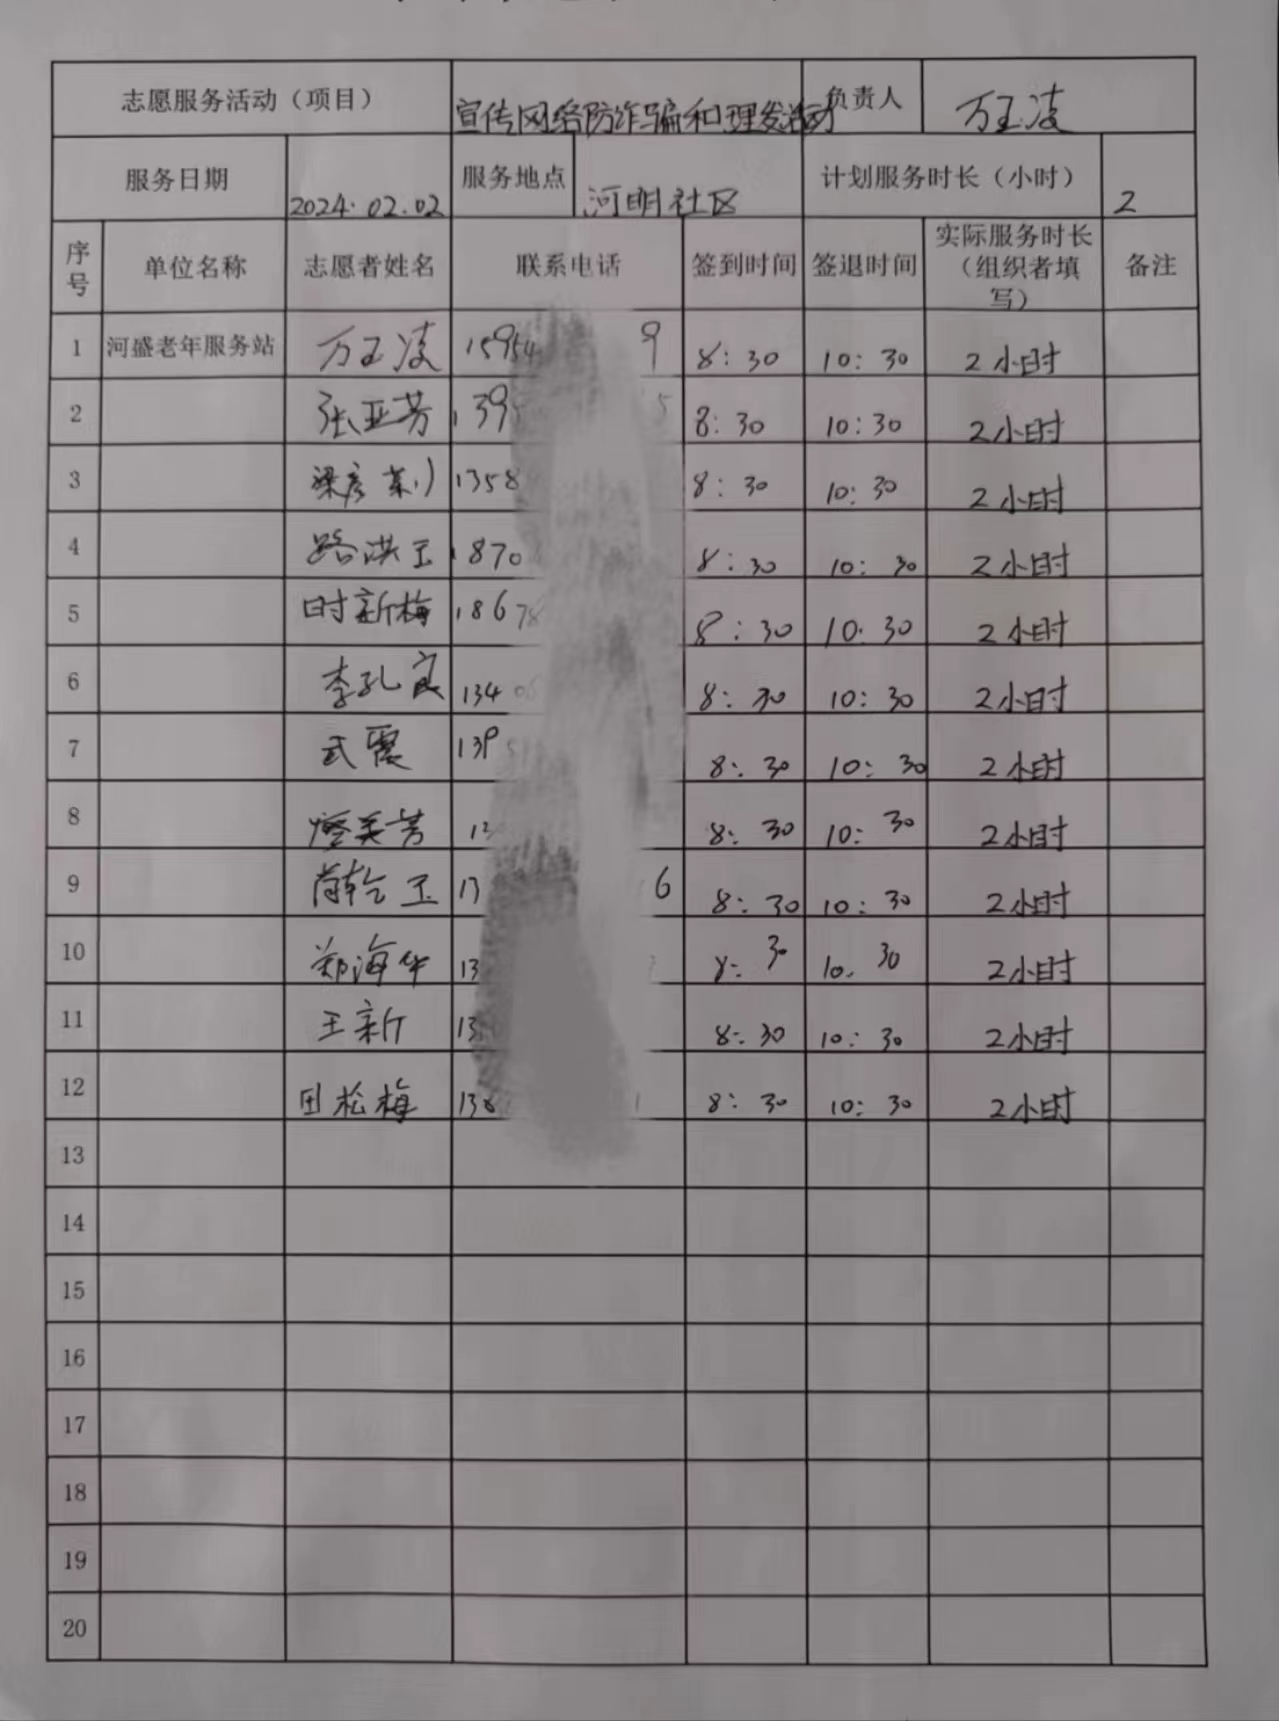 志愿服务活动（项目） 宣传网络防诈骗和理发活动 负责人 万玉凌
服务日期 2024.02.02 服务地点 河明社区 计划服务时长（小时） 2
序号 单位名称 志愿者姓名 联系电话 签到时间 签退时间 实际服务时长（组织者填写） 备注
1 河盛老年服务站 万玉凌 15954 9 8:30 10:30 2小时
2 张亚芳 139 5 8:30 10:30 2小时
3 梁彦 1358 8:30 10:30 2小时
4 路洪玉 1870 8:30 10:30 2小时
5 时新梅 18678 8:30 10:30 2小时
6 李孔良 13406 8:30 10:30 2小时
7 武震 139 8:30 10:30 2小时
8 美芳 8:30 10:30 2小时
9 17 6 8:30 10:30 2小时
10 郑海华 13 8:30 10:30 2小时
11 王新 13 8:30 10:30 2小时
12 田松梅 138 8:30 10:30 2小时
13
14
15
16
17
18
19
20